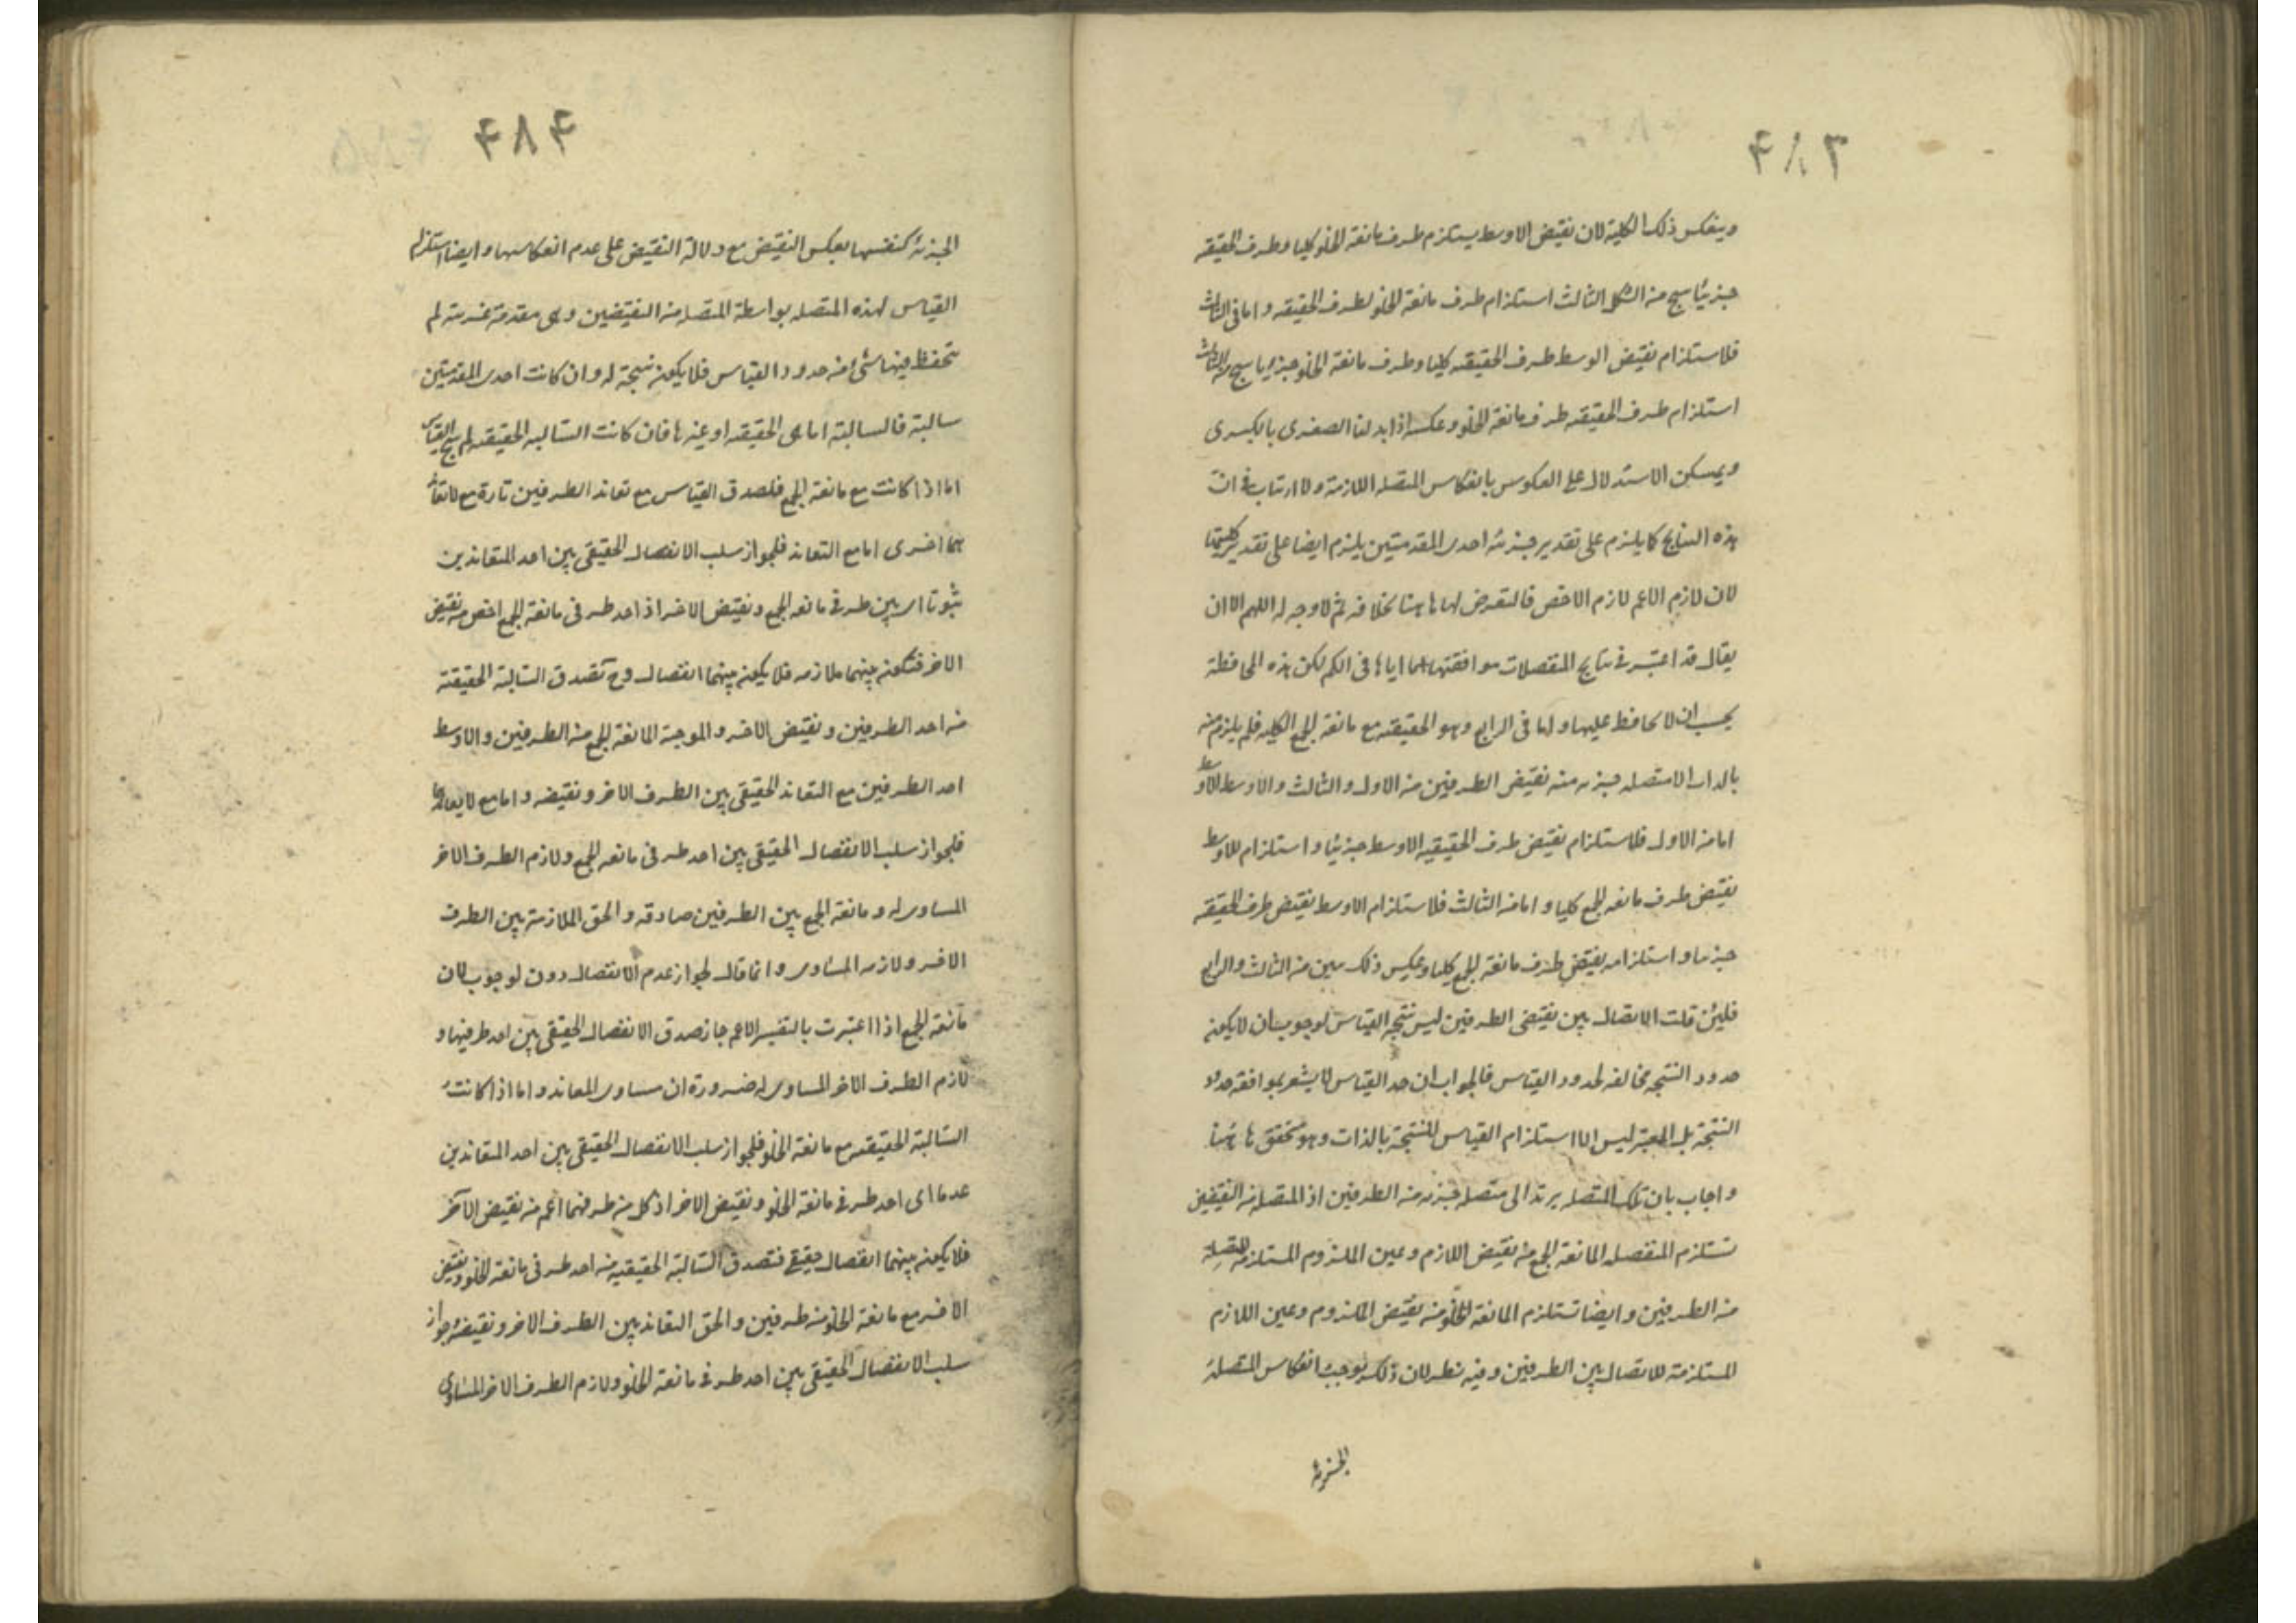 ۴۸۳
وينعكس ذلك الكلية لان نقيض الاوسط يستلزم طرف مانعة الخلو كليا وطرف الحقيقه
جزئيا ينتج من الشكل الثالث استلزام طرف مانعة الخلو لطرف الحقيقه واما فى الثالث
فلاستلزام نقيض الوسط طرف الحقيقه كليا وطرف مانعة الخلو جزئيا ينتج من الثالث
استلزام طرف الحقيقه طرف مانعة الخلو وعكسه اذا بدلنا الصغرى بالكبرى
ويمكن الاستدلال على العكوس بانعكاس المتصله اللازمة ولا ارتياب فى ان
هذه النتايج كما يلزم على تقدير جزئية احدى المقدمتين يلزم ايضا على تقدير كليتهما
لان لازم الاعم لازم الاخص فالتعرض لها هاهنا بخلافه ثم لا وجه له اللهم الا ان
يقال قد اعتبر فى نتايج المتصلات موافقتها اياها فى الكم لكن هذه المحافظة
يجب ان لا يحافظ عليها واما فى الرابع وهو الحقيقه مع مانعة الجمع الكليه فلم يلزم منه
بالذات الا متصله جزئيه منه نقيض الطرفين من الاول والثالث والاوسط الاوسط
اما من الاول فلاستلزام نقيض طرف الحقيقيه الاوسط جزئيا واستلزام الاوسط
نقيض طرف مانعه الجمع كليا واما من الثالث فلاستلزام الاوسط نقيض طرف الحقيقه
جزئيا واستلزامه نقيض طرف مانعة الجمع كليا وعكس ذلك يبين من الثالث والرابع
فلئن قلت الاتصال بين نقيضى الطرفين ليس نتيجه القياس لوجوب ان لا يكون
حدود النتيجه مخالفه لحدود القياس فالجواب ان حد القياس لا يشعر بموافقه حدود
النتيجة بل المعتبر ليس الا استلزام القياس للنتيجة بالذات وهو متحقق هاهنا
واجاب بان تلك المتصله يرتد الى متصله جزئيه منه الطرفين اذ المتصله منه النقيضين
تستلزم المنفصله المانعة الجمع منه نقيض اللازم وعين الملزوم المستلزمة للمتصلة
منه الطرفين وايضا تستلزم المانعة للخلو منه نقيض الملزوم وعين اللازم
المستلزمة للاتصال بين الطرفين وفيه نظر لان ذلك يوجب انعكاس المتصلة
الجزئية
۴۸۴
الجزئية كنفسها بعكس النقيض مع دلالة النقيض على عدم انعكاسها وايضا استلزام
القياس لهذه المتصله بواسطة المتصله منه النقيضين وهى مقدمة غريبة لم
تحفظ فيها شئ منه حدود القياس فلا يكون نتيجة له وان كانت احدى المقدمتين
سالبة فالسالبة اما هى الحقيقه او غيرها فان كانت السالبه الحقيقه لم ينتج القياس
اما اذا كانت مع مانعة الجمع فلصدق القياس مع تعاند الطرفين تارة مع لا تعاند
هما اخرى اما مع التعاند فلجواز سلب الانفصال الحقيقى بين احد المتعاندين
ثبوتا اى بين طرفى مانعه الجمع ونقيض الاخر اذ احد طرفى مانعة الجمع اخص منه نقيض
الاخر فتكون بينهما ملازمه فلا يكون بينهما انفصال وح تصدق السالبة الحقيقته
منه احد الطرفين ونقيض الاخر والموجبة المانعة الجمع منه الطرفين والاوسط
احد الطرفين مع التعاند الحقيقى بين الطرف الاخر ونقيضه واما مع لا تعاندهما
فلجواز سلب الانفصال الحقيقى بين احد طرفى مانعه الجمع ولازم الطرف الاخر
المساوى له ومانعة الجمع بين الطرفين صادقه والحق الملازمة بين الطرف
الاخر ولازمه المساوى وانما قال لجواز عدم الانفصال دون لوجوب لان
مانعة الجمع اذا اعتبرت بالتفسير الاعم جاز صدق الانفصال الحقيقى بين احد طرفيها و
لازم الطرف الاخر المساوى له ضرورة ان مساوى المعاند واما اذا كانت
السالبة الحقيقته مع مانعة الخلو فلجواز سلب الانفصال الحقيقى بين احد المتعاندين
عدما اى احد طرفى مانعة الخلو ونقيض الاخر اذ كل منه طرفيها اعم منه نقيض الآخر
فلا يكون بينهما انفصال حقيقى فتصدق السالبة الحقيقيه منه احد طرفى مانعة الخلو ونقيض
الاخر مع مانعة الخلو منه طرفين والحق التعاند بين الطرف الاخر ونقيضه ولجواز
سلب الانفصال الحقيقى بين احد طرفى مانعة الخلو ولازم الطرف الاخر المساوى